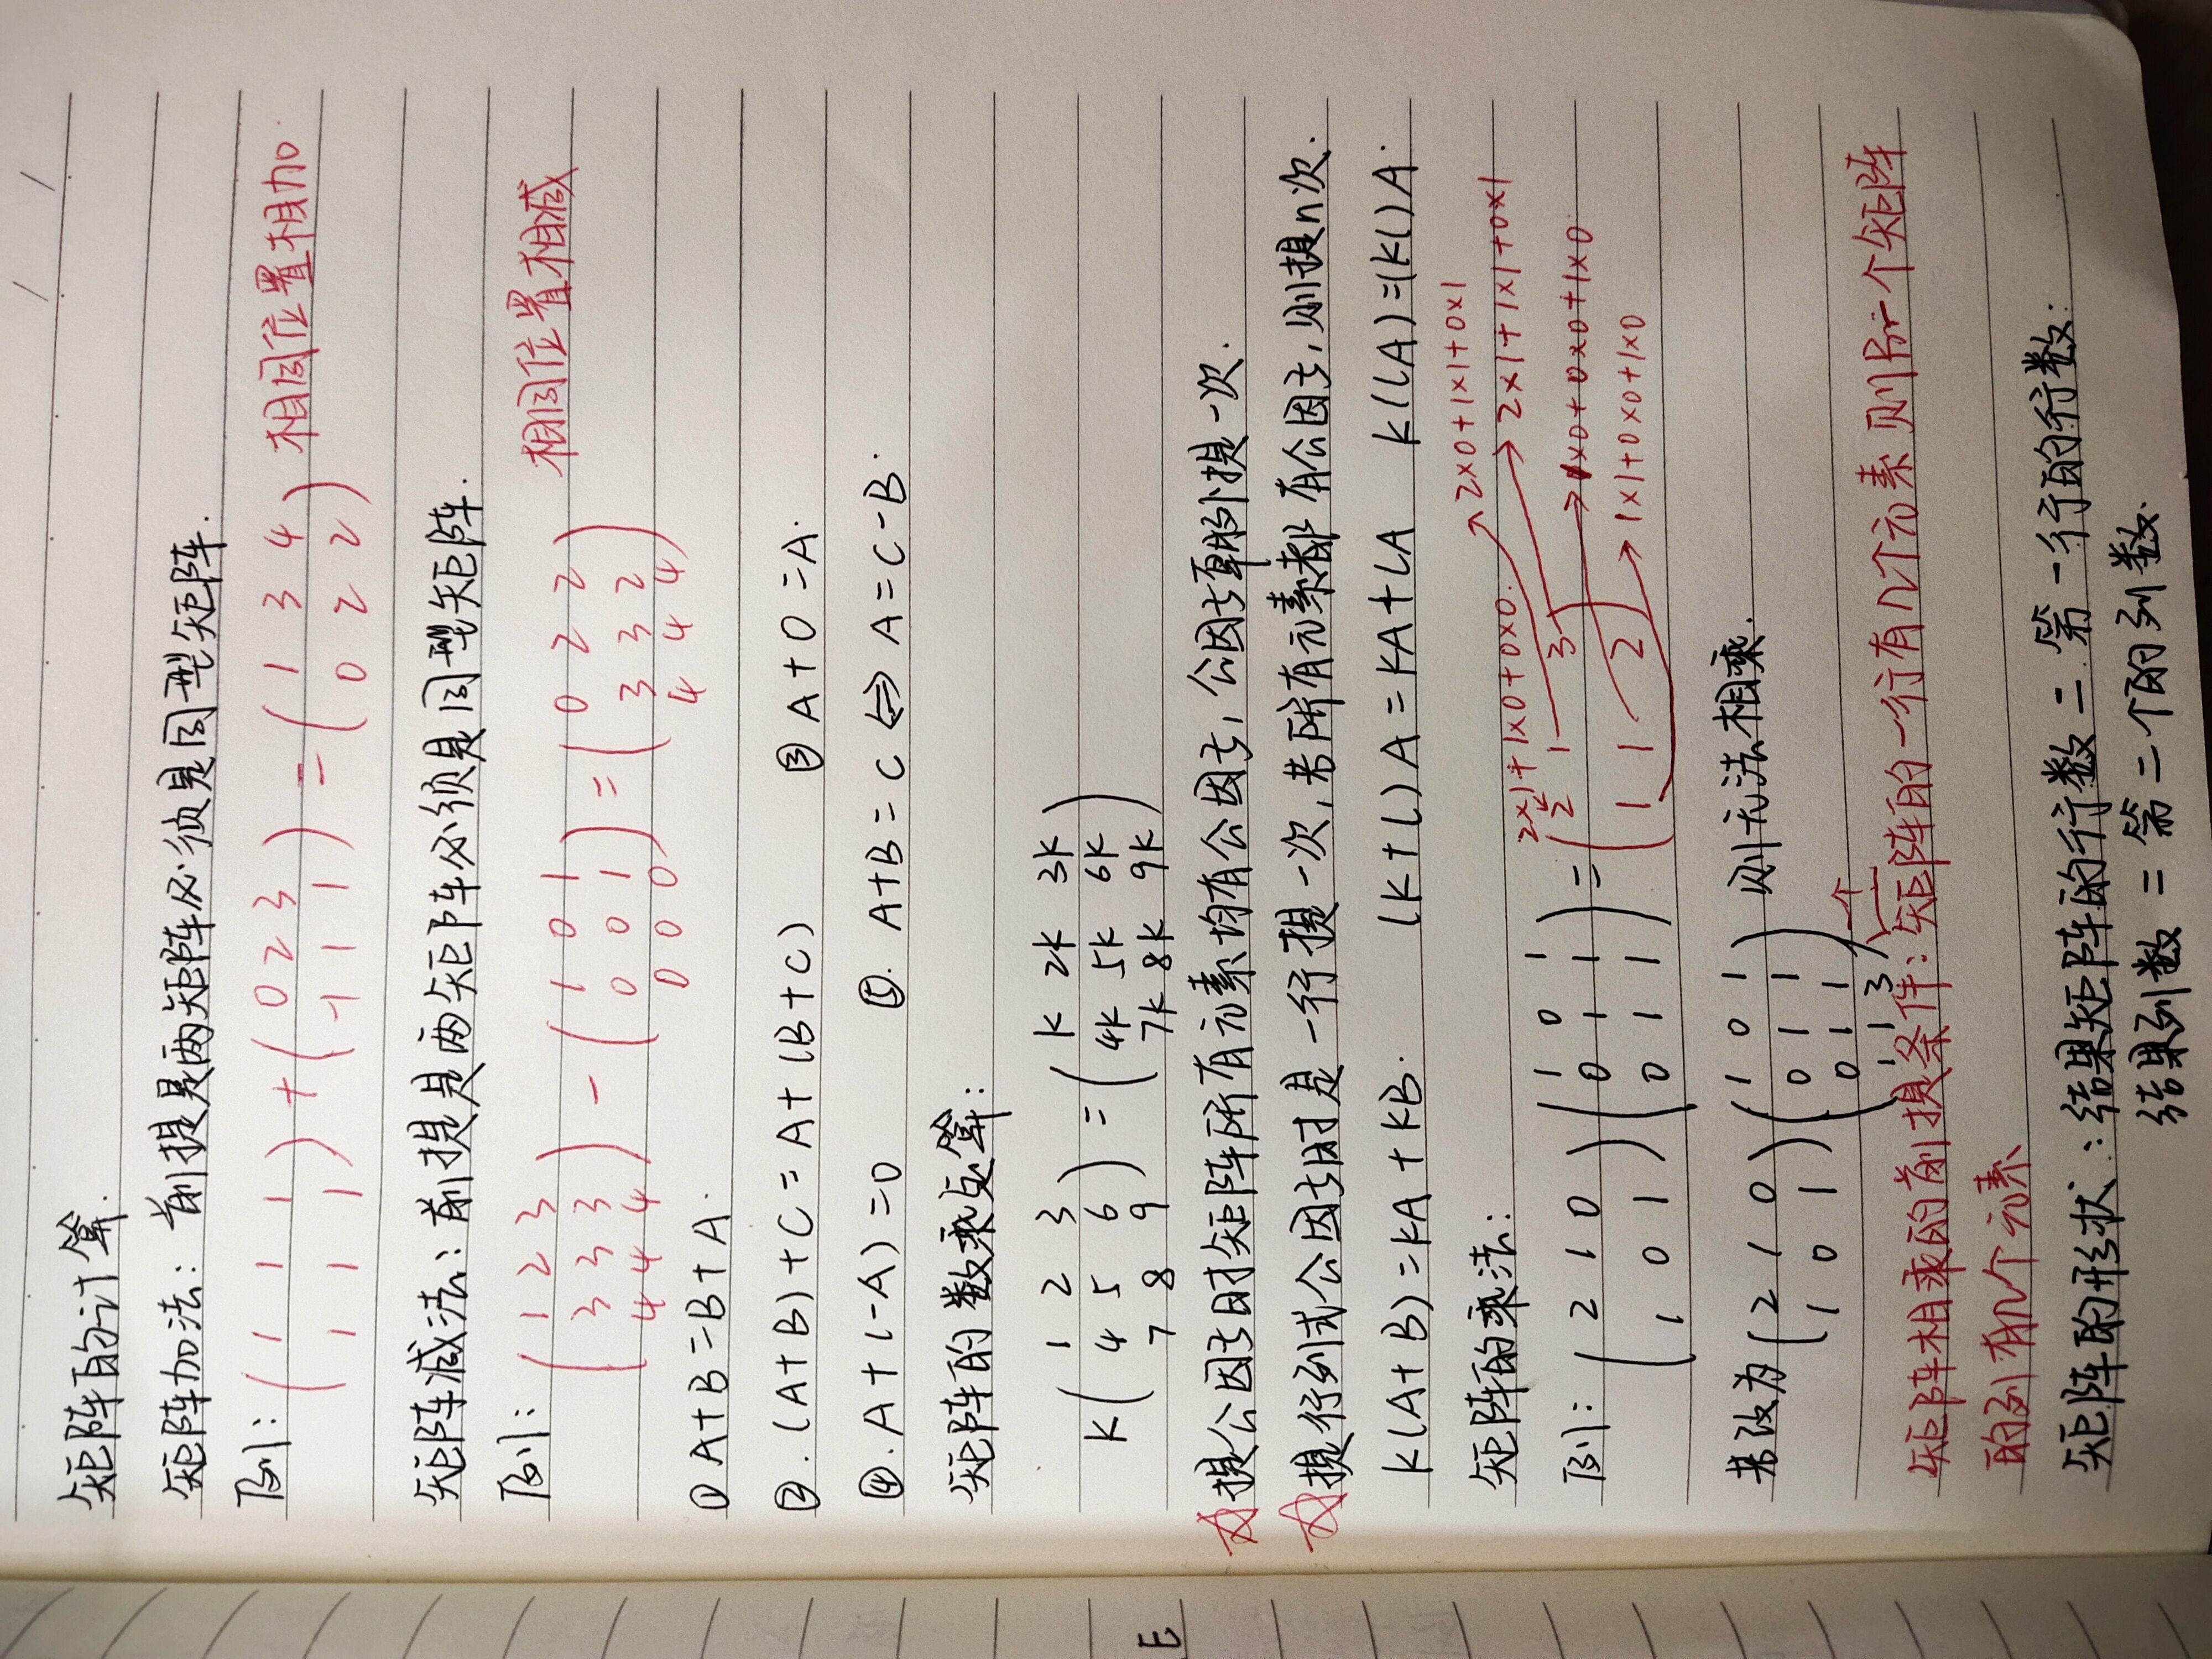 矩阵的计算.
矩阵加法: 前提是两矩阵必须是同型矩阵.
例: (1 1 1) + (0 2 3) = (1 3 4) 相同位置相加.
1 1 1 -1 1 1 0 2 2
矩阵减法: 前提是两矩阵必须是同型矩阵.
例: (1 2 3) - (1 0 1) = (0 2 2) 相同位置相减
3 3 3 0 0 1 3 3 2
4 4 4 0 0 0 4 4 4
① A+B=B+A.
②. (A+B)+C=A+(B+C) ③ A+0=A.
④. A+(-A)=0 ⑤. A+B=C⇔A=C-B.
矩阵的数乘运算:
K(1 2 3) = (k 2k 3k)
4 5 6 4k 5k 6k
7 8 9 7k 8k 9k
☆提公因子时矩阵所有元素均有公因子, 公因子向外提一次.
☆提行列式公因子时是一行提一次, 若所有元素都有公因子, 则提n次.
K(A+B)=KA+KB. (K+l)A=KA+lA K(lA)=(Kl)A.
矩阵的乘法:
2×1+1×0+0×0. → 2×0+1×1+0×1
例: (2 1 0)(1 0 1) = (2 1 3) → 2×1+1×1+0×1
1 0 1 0 1 1 1 1 2 → 1×0+0×0+1×0
0 1 1 → 1×1+0×0+1×0
若改为(2 1 0)(1 0 1) 则无法相乘.
1 0 1 0 1 1
0 1 1
1 1 3 }一个
矩阵相乘的前提条件: 矩阵的一行有几个元素则另一个矩阵
的列有几个元素
矩阵的形状: 结果矩阵的行数 = 第一行的行数:
结果列数 = 第二个的列数.
E